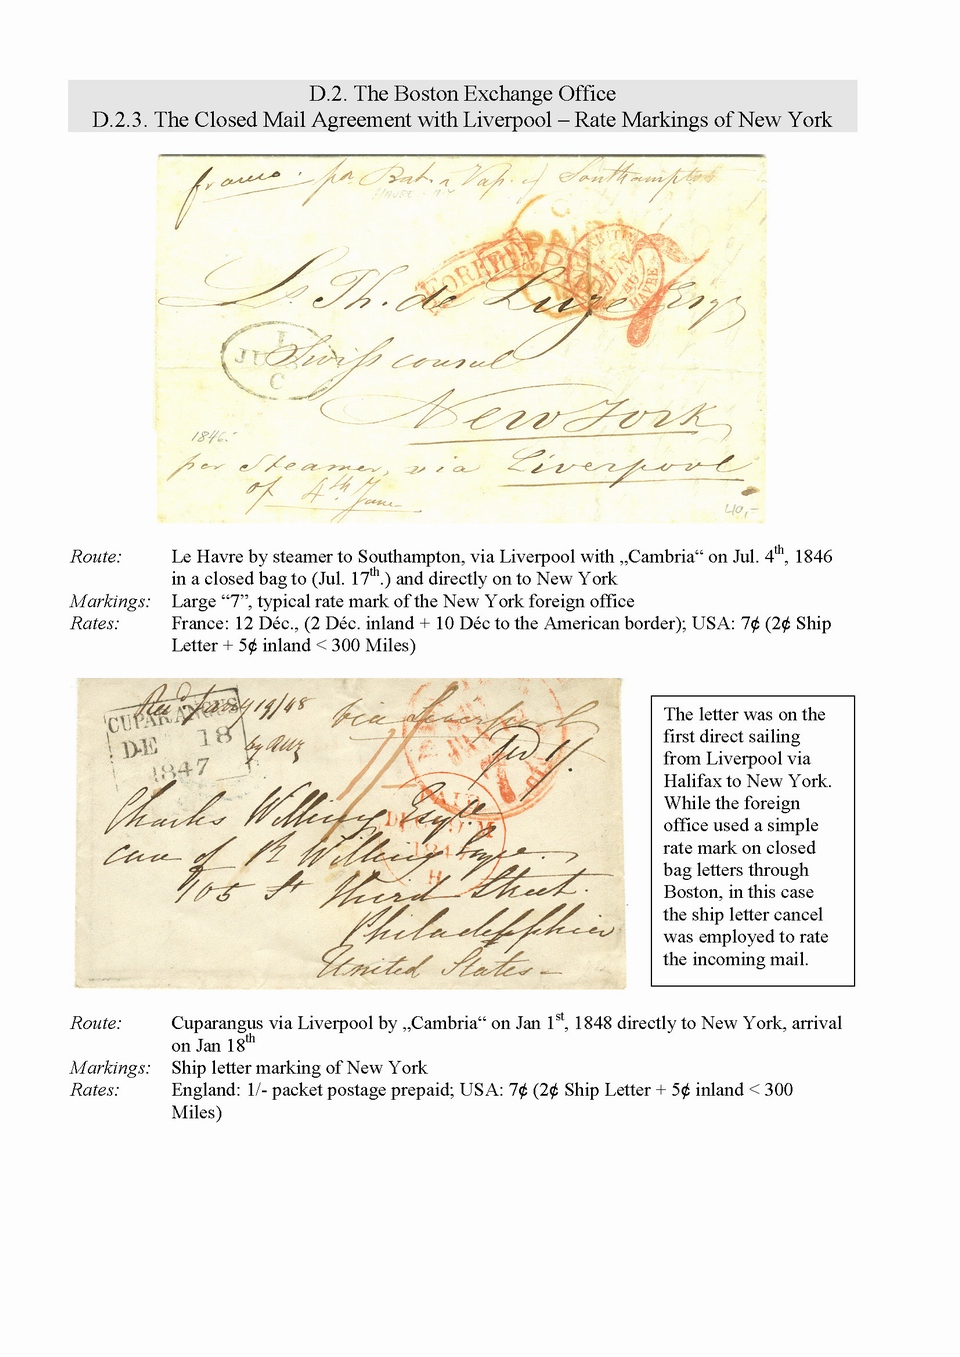 D.2. The Boston Exchange Office
D.2.3. The Closed Mail Agreement with Liverpool – Rate Markings of New York
franco. per Bat. à Vap. of Southampton
HAVRE
PAID
FOREIGN
HAVRE
Ls. Th. de Luze Esqr
1
JU
C
Swiss consul
New York
1846.
per Steamer, via Liverpool
of 4th June
40,-
Route: Le Havre by steamer to Southampton, via Liverpool with „Cambria“ on Jul. 4th, 1846
in a closed bag to (Jul. 17th.) and directly on to New York
Markings: Large “7”, typical rate mark of the New York foreign office
Rates: France: 12 Déc., (2 Déc. inland + 10 Déc to the American border); USA: 7¢ (2¢ Ship
Letter + 5¢ inland < 300 Miles)
CUPARANGUS
DE 18
1847
via Liverpool
PAID
Charles Willing Esqre.
care of R Willing Esqre.
105 St Third Street.
Philadelphia
United States –
The letter was on the
first direct sailing
from Liverpool via
Halifax to New York.
While the foreign
office used a simple
rate mark on closed
bag letters through
Boston, in this case
the ship letter cancel
was employed to rate
the incoming mail.
Route: Cuparangus via Liverpool by „Cambria“ on Jan 1st, 1848 directly to New York, arrival
on Jan 18th
Markings: Ship letter marking of New York
Rates: England: 1/- packet postage prepaid; USA: 7¢ (2¢ Ship Letter + 5¢ inland < 300
Miles)